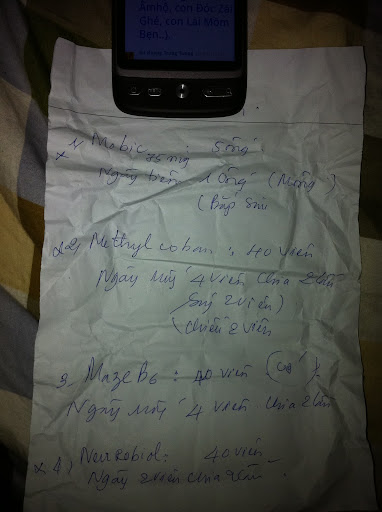 Ẩmhô, con Đóc Zái
Ghẻ, con Lái Mồm
Bẹn..).
1/ Mobic 7,5mg : 5 ống
Ngày tiêm 1 ống (Mông)
(Bắp sâu
2, Methylcoban : 40 viên
Ngày uống 4 viên chia 2 lần
Sáng 2 viên)
Chiều 2 viên
3, Maze B6 : 40 viên
Ngày uống 4 viên chia 2 lần
4, Neurobid : 40 viên
Ngày 2 viên chia 2 lần